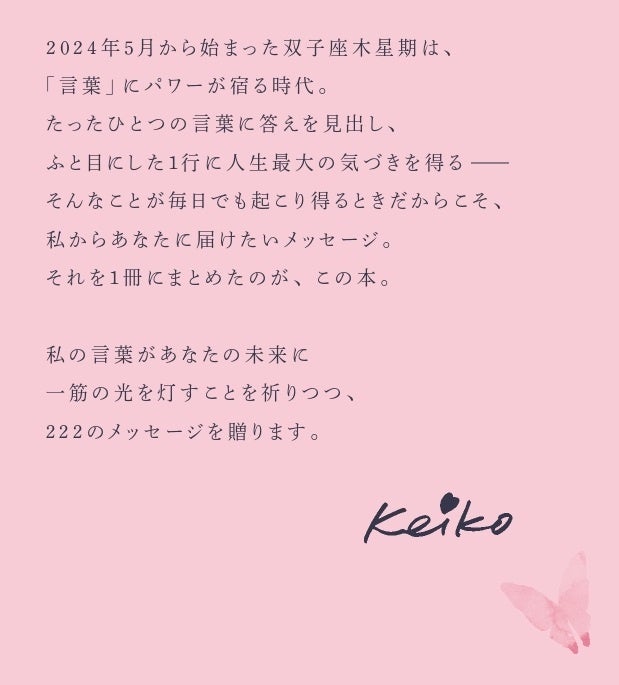 2024年5月から始まった双子座木星期は、
「言葉」にパワーが宿る時代。
たったひとつの言葉に答えを見出し、
ふと目にした1行に人生最大の気づきを得る――
そんなことが毎日でも起こり得るときだからこそ、
私からあなたに届けたいメッセージ。
それを1冊にまとめたのが、この本。
私の言葉があなたの未来に
一筋の光を灯すことを祈りつつ、
222のメッセージを贈ります。
Keiko